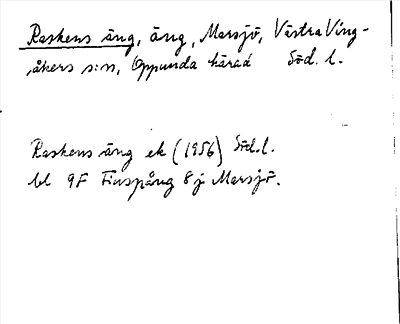 Raskens äng, äng, Marsjö, Västra Ving-
åkers s:n, Oppunda härad Söd. l.
Raskens äng ek (1956) Söd. l.
bl 9F Finspång 8 j Marsjö.